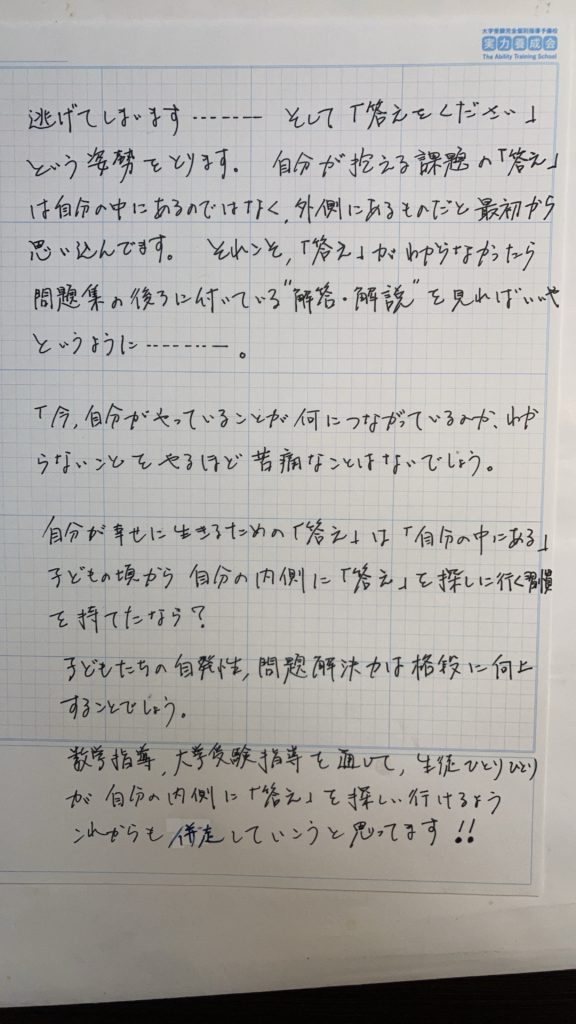 大学受験完全個別指導予備校
実力養成会
The Ability Training School
逃げてしまいます ------- そして「答えをください」
という姿勢をとります。 自分が抱える課題の「答え」
は自分の中にあるのではなく、外側にあるものだと最初から
思い込んでます。 それこそ、「答え」がわからなかったら
問題集の後ろに付いている"解答・解説"を見ればいいや
というように -------。
「今、自分がやっていることが何につながっているのか、わか
らないことをやるほど苦痛なことはないでしょう。
自分が幸せに生きるための「答え」は「自分の中にある」
子どもの頃から自分の内側に「答え」を探しに行く習慣
を持てたなら？
子どもたちの自発性、問題解決力は格段に向上
することでしょう。
数学指導、大学受験指導を通じて、生徒ひとりひとり
が自分の内側に「答え」を探しに行けるよう
これからも併走していこうと思ってます!!